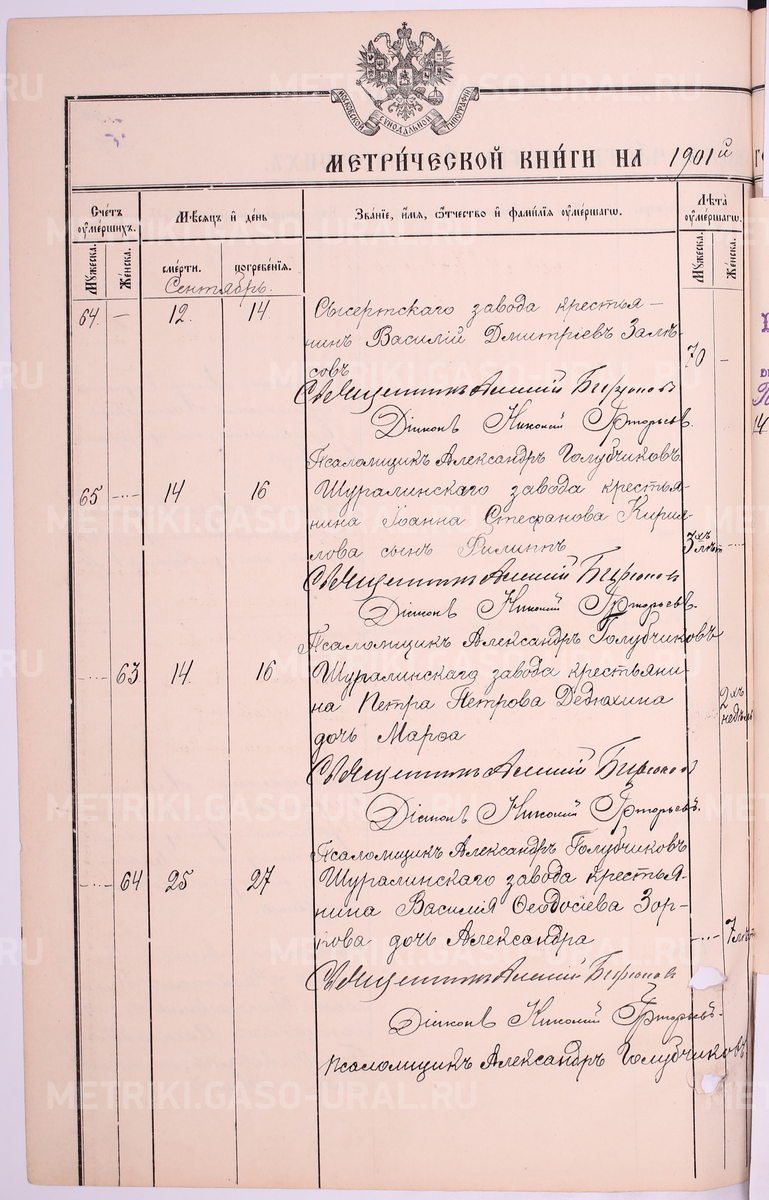 МОСКОВСКОЙ СѴНОДАЛЬНОЙ ТИПОГРАФІИ
МЕТРИ́ЧЕСКОЙ КНИ́ГИ НА 1901й
Счетъ ᲂу҆ме́ршихъ.
Мѣсѧцъ и҆ де́нь
Зва́нїе, и҆́мѧ, ѻ҆́тчество и҆ фами́лїѧ ᲂу҆ме́ршагѡ.
Лѣ́та ᲂу҆ме́ршагѡ.
Мꙋ́жеска.
Же́нска.
сме́рти.
погребе́нїѧ.
Мꙋ́жеска.
Же́нска.
Сентябрь.
64. — 12. 14 Сысертскаго завода крестья-
нинъ Василій Дмитріевъ Залѣ-
совъ 70 -
Священникъ Алексій Бирюковъ
Діаконъ Николай Григорьевъ.
Псаломщикъ Александръ Голубчиковъ
65 -..- 14 16 Шуралинскаго завода крестья-
нина Іоанна Стефанова Кирил-
лова сынъ Филиппъ 3хъ лѣт -..-
Священникъ Алексій Бирюковъ
Діаконъ Николай Григорьевъ.
Псаломщикъ Александръ Голубчиковъ
-..- 63 14 16 Шуралинскаго завода крестьяни-
на Петра Петрова Дедюхина 2хъ недѣль
дочь Марѳа
Священникъ Алексій Бирюковъ
Діаконъ Николай Григорьевъ.
Псаломщикъ Александръ Голубчиковъ
-..- 64 25 27 Шуралинскаго завода крестья-
нина Василія Ѳеодосіева Зор-
дочь Александра -..- 7 лѣт
Священникъ Алексій Бирюковъ
Діаконъ Николай Григорьевъ.
Псаломщикъ Александръ Голубчиковъ
METRIKI.GASO-URAL.RU